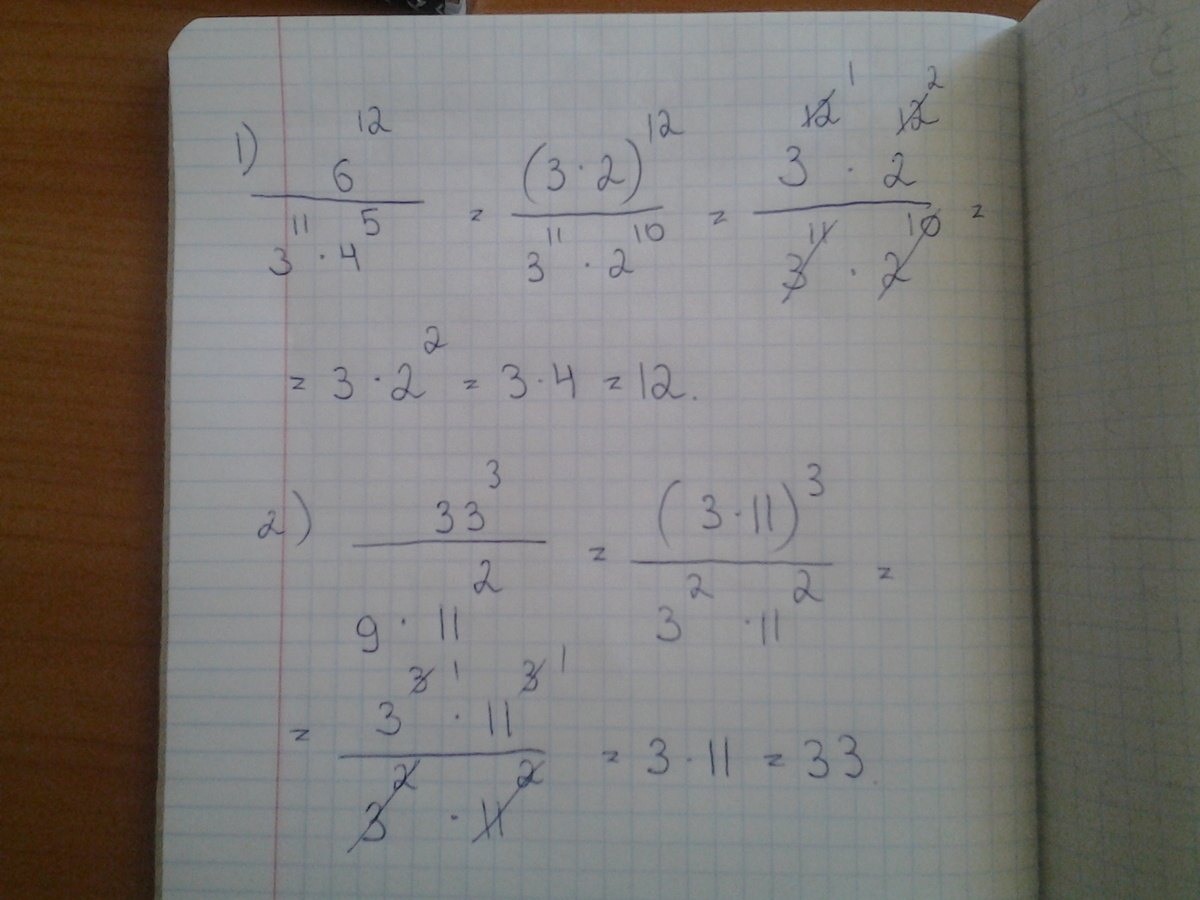 1) 6^12 / (3^11 · 4^5) = (3·2)^12 / (3^11 · 2^10) = 3^12 1 · 2^12 2 / (3^11 · 2^10) =
= 3·2^2 = 3·4 = 12.
2) 33^3 / (9 · 11^2) = (3·11)^3 / (3^2 · 11^2) =
= 3^3 1 · 11^3 1 / (3^2 · 11^2) = 3·11 = 33.